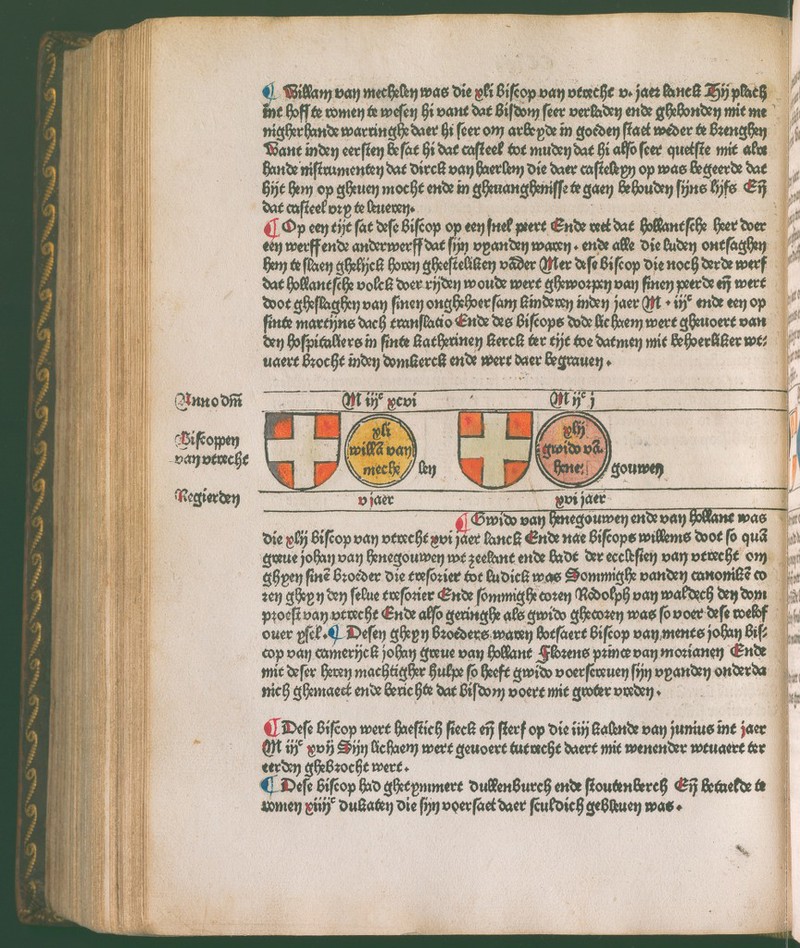 ¶ Willam van mechelen was die xli biscop van vtrecht v. jaer lanck Hij plach
int hoff te romen te wesen hi vant dat bisdom seer verladen ende ghebonden mit me
nigherhande warringhe daer hi seer om arbeyde in goeden staet weder te brenghen
Want inden eersten besat hi dat casteel tot muden dat hi also seer quetste mit alre
hande instrumenten dat dirck van haerlem die daer casteleyn op was begeerde dat
hijt hem op gheuen mocht ende in gheuanghenisse te gaen behouden sijns lijfs Eñ
dat casteel vry te leueren.
¶ Op een tijt sat dese biscop op een snel peert Ende reet dat hollantsche heer doer
een werff ende anderwerff dat sijn vyanden waren. ende alle die luden ontsaghen
hem te slaen ghelijck horen gheesteliken vāder Mer dese biscop die noch derde werf
dat hollantsche volck doer rijden woude wert gheworpen van sinen peerde eñ wert
doot gheslaghen van sinen onghehoersam kinderen inden jaer M. iijc ende een op
sinte martijns dach translatio Ende des biscops dode lichaem wert gheuoert van
den hospitaliers in sinte katherinen kerck ter tijt toe datmen mit behoerliker wt⸗
uaert brocht inden domkerck ende wert daer begrauen.
Anno dñi M ijc xcvi M iijc j
Biscoppen
van vtrecht
xli
willā van
meche len
xlij
gwido vā
hene: gouwen
Regierden v jaer xvi jaer
¶ Gwido van henegouwen ende van hollant was
die xlij biscop van vtrecht xvi jaer lanck Ende nae biscops willems doot so quā
greue johan van henegouwen wt zeelant ende badt der ecclesien van vtrecht om
ghyen sinē broeder die tresorier tot ludick was Sommighe vanden canonikē co
ren gheyn den selue tresorier Ende sommighe coren Rodolph van waldech den dom
proest van vtrecht Ende also geringhe als gwido ghecoren was so voer dese roelof
ouer ysel. ¶ Desen gheyn broeders waren botsaert biscop van ments johan bis⸗
cop van camerijck johan greue van hollant Florens prince van morianen Ende
mit deser heren machtigher hulpe so heeft gwido voerscreuen sijn vyanden onderda
nich ghemaect ende berichte dat bisdom voert mit groter vreden.
¶ Dese biscop wert haestich sieck eñ sterf op die iiij kalende van junius int jaer
M iijc xvij Sijn lichaem wert geuoert tutrecht daert mit wenender wtuaert ter
eerden ghebrocht wert.
¶ Dese biscop had ghetymmert dullenburch ende stoutenberch Eñ betaelde te
romen xiiijc dukaten die sijn voersaet daer sculdich gebleuen was.